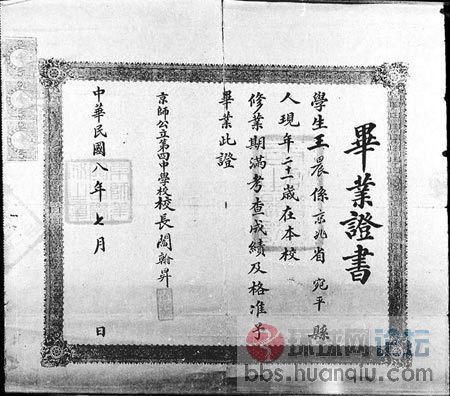 畢業證書
學生王晨係京兆省宛平縣
人現年二十一歲在本校
修業期滿考查成績及格准予
畢業此證
京師公立第四中學校校長閻翰昇
中華民國八年七月 日
环球网论坛
bbs.huanqiu.com